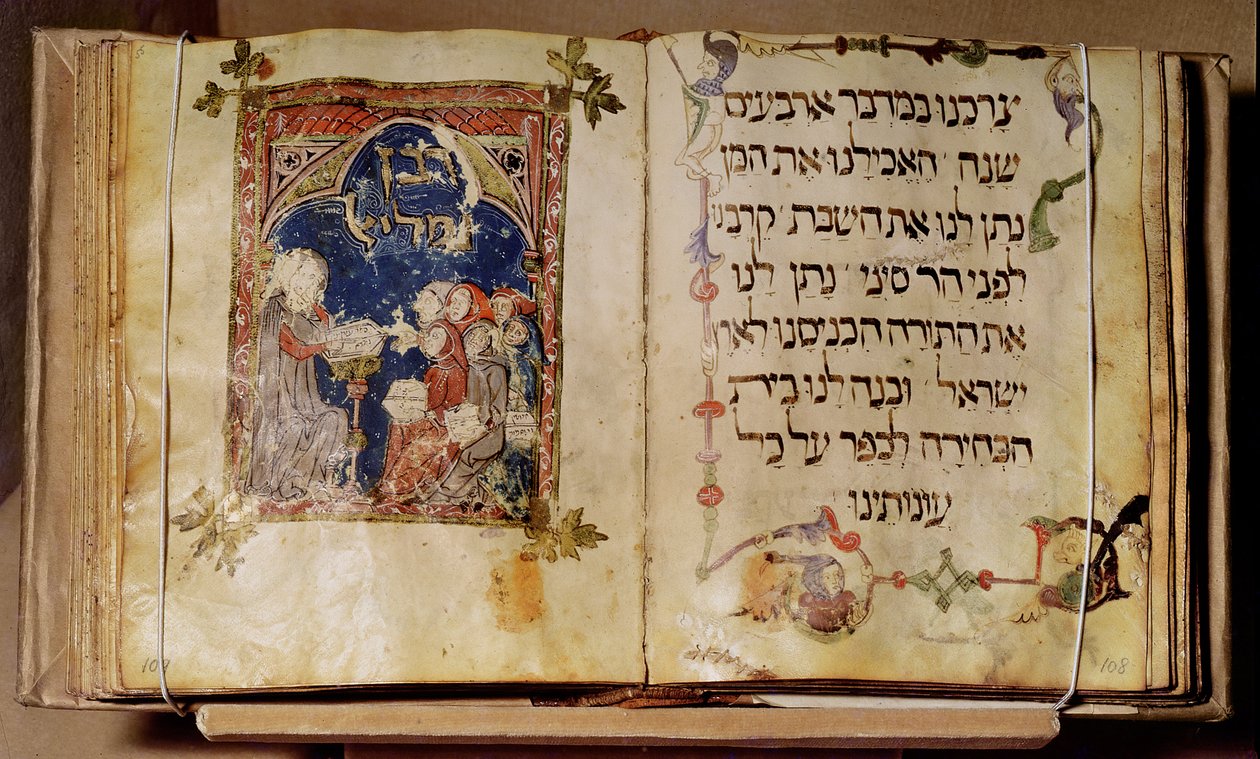 צרכנו במדבר ארבעים
שנה האכילנו את המן
נתן לנו את השבת קרבנו
לפני הר סיני נתן לנו
את התורה הכניסנו לארץ
ישראל ובנה לנו בית
הבחירה לכפר על כל
עונותינו
108
רבן
גמליאל
109